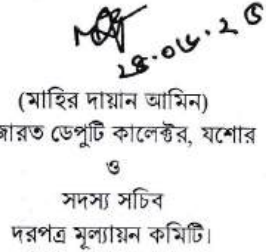 ২৪.০৬.২৫
(মাহির দায়ান আমিন)
জারত ডেপুটি কালেক্টর, যশোর
ও
সদস্য সচিব
দরপত্র মূল্যায়ন কমিটি।